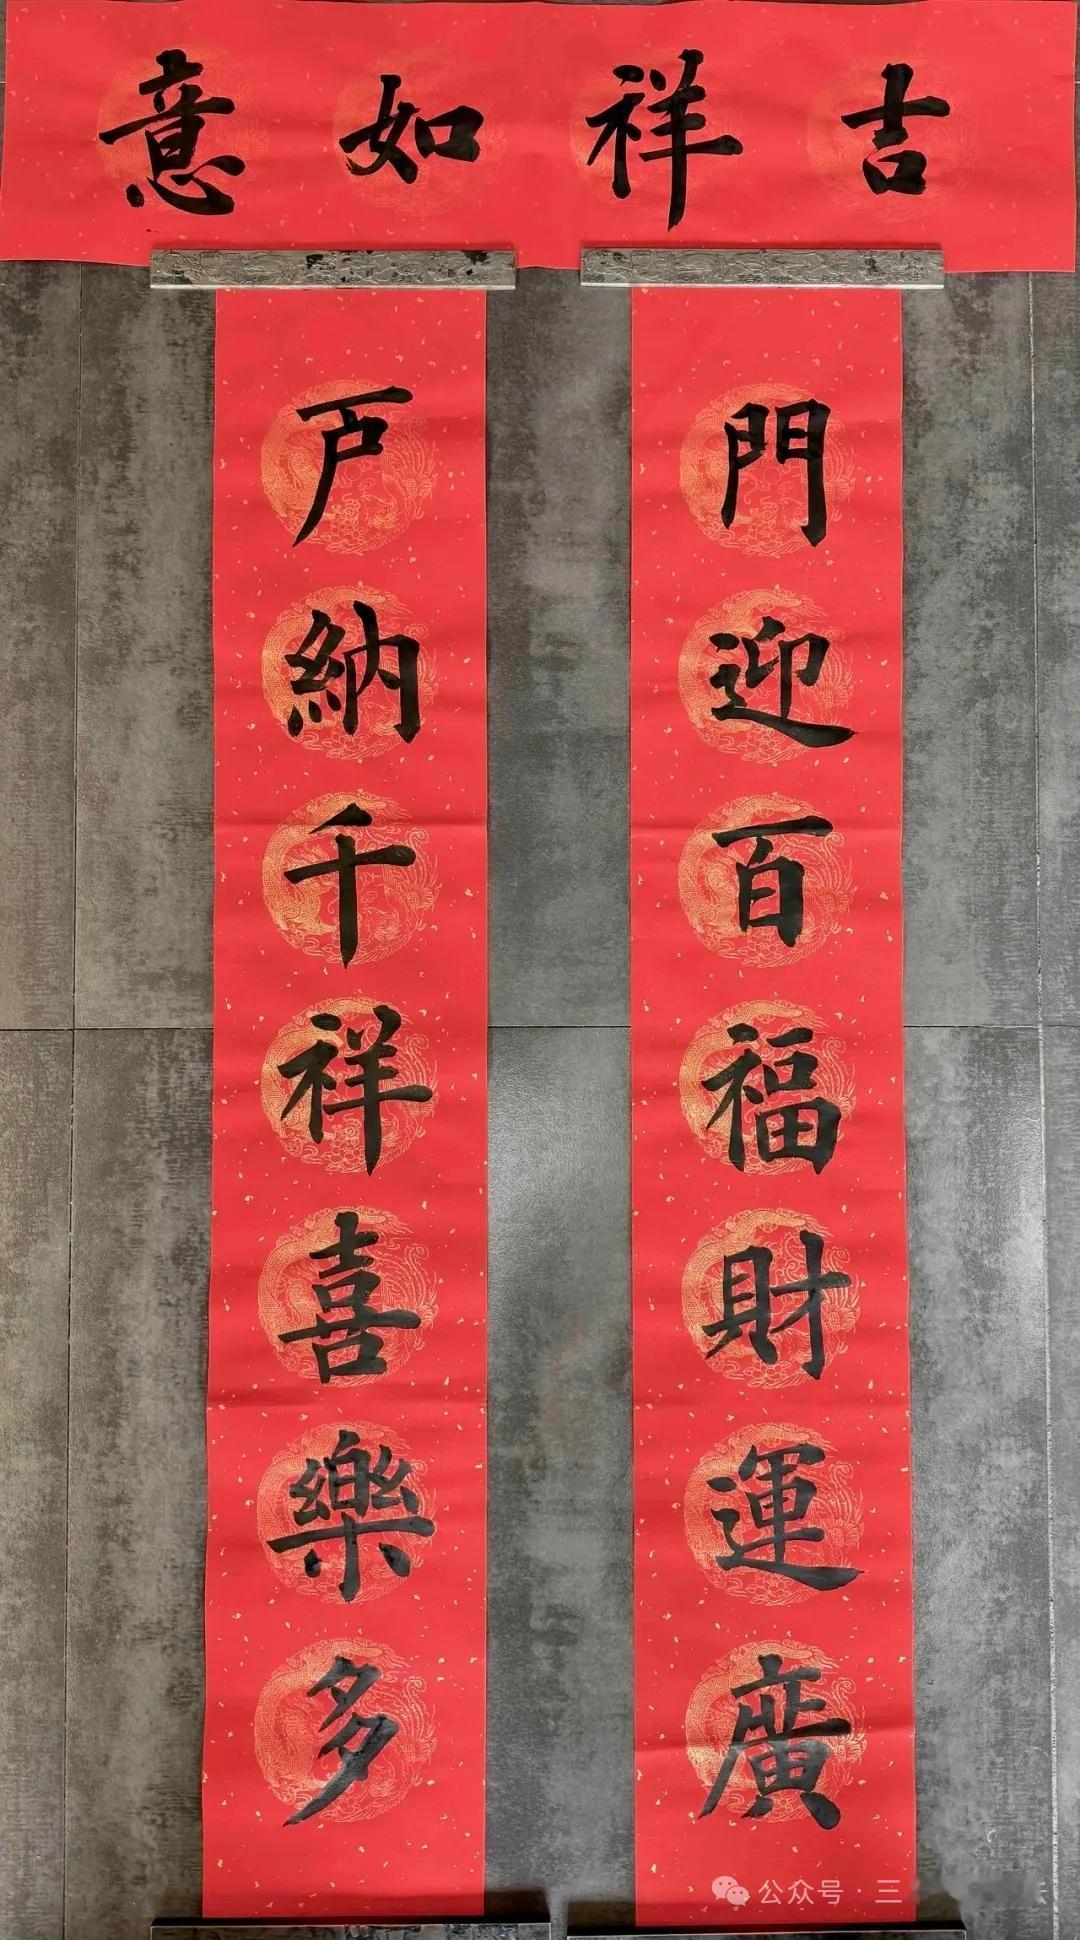 吉祥如意
門迎百福財運廣
戶納千祥喜樂多
公众号·三